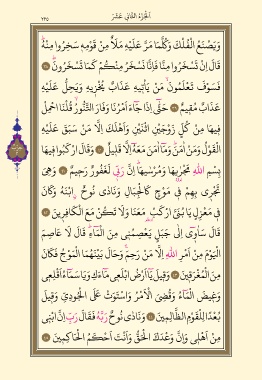 الجزء الثاني عشر
٢٢٥
وَيَصْنَعُ الْفُلْكَ وَكُلَّمَا مَرَّ عَلَيْهِ مَلَأٌ مِنْ قَوْمِهِ سَخِرُوا مِنْهُ
قَالَ اِنْ تَسْخَرُوا مِنَّا فَاِنَّا نَسْخَرُ مِنْكُمْ كَمَا تَسْخَرُونَ ٣٨
فَسَوْفَ تَعْلَمُونَ مَنْ يَأْتِيهِ عَذَابٌ يُخْزِيهِ وَيَحِلُّ عَلَيْهِ
عَذَابٌ مُقِيمٌ ٣٩ حَتَّى اِذَا جَاءَ اَمْرُنَا وَفَارَ التَّنُّورُ قُلْنَا احْمِلْ
فِيهَا مِنْ كُلٍّ زَوْجَيْنِ اثْنَيْنِ وَاَهْلَكَ اِلَّا مَنْ سَبَقَ عَلَيْهِ
الْقَوْلُ وَمَنْ اٰمَنَ وَمَا اٰمَنَ مَعَهُ اِلَّا قَلِيلٌ ٤٠ وَقَالَ ارْكَبُوا فِيهَا
بِسْمِ اللّٰهِ مَجْرٰيهَا وَمُرْسٰيهَا اِنَّ رَبِّي لَغَفُورٌ رَحِيمٌ ٤١ وَهِيَ
تَجْرِي بِهِمْ فِي مَوْجٍ كَالْجِبَالِ وَنَادٰى نُوحٌ ابْنَهُ وَكَانَ
فِي مَعْزِلٍ يَا بُنَيَّ ارْكَبْ مَعَنَا وَلَا تَكُنْ مَعَ الْكَافِرِينَ ٤٢
قَالَ سَاٰوِي اِلٰى جَبَلٍ يَعْصِمُنِي مِنَ الْمَاءِ قَالَ لَا عَاصِمَ
الْيَوْمَ مِنْ اَمْرِ اللّٰهِ اِلَّا مَنْ رَحِمَ وَحَالَ بَيْنَهُمَا الْمَوْجُ فَكَانَ
مِنَ الْمُغْرَقِينَ ٤٣ وَقِيلَ يَا اَرْضُ ابْلَعِي مَاءَكِ وَيَا سَمَاءُ اَقْلِعِي
وَغِيضَ الْمَاءُ وَقُضِيَ الْاَمْرُ وَاسْتَوَتْ عَلَى الْجُودِيِّ وَقِيلَ
بُعْدًا لِلْقَوْمِ الظَّالِمِينَ ٤٤ وَنَادٰى نُوحٌ رَبَّهُ فَقَالَ رَبِّ اِنَّ ابْنِي
مِنْ اَهْلِي وَاِنَّ وَعْدَكَ الْحَقُّ وَاَنْتَ اَحْكَمُ الْحَاكِمِينَ ٤٥